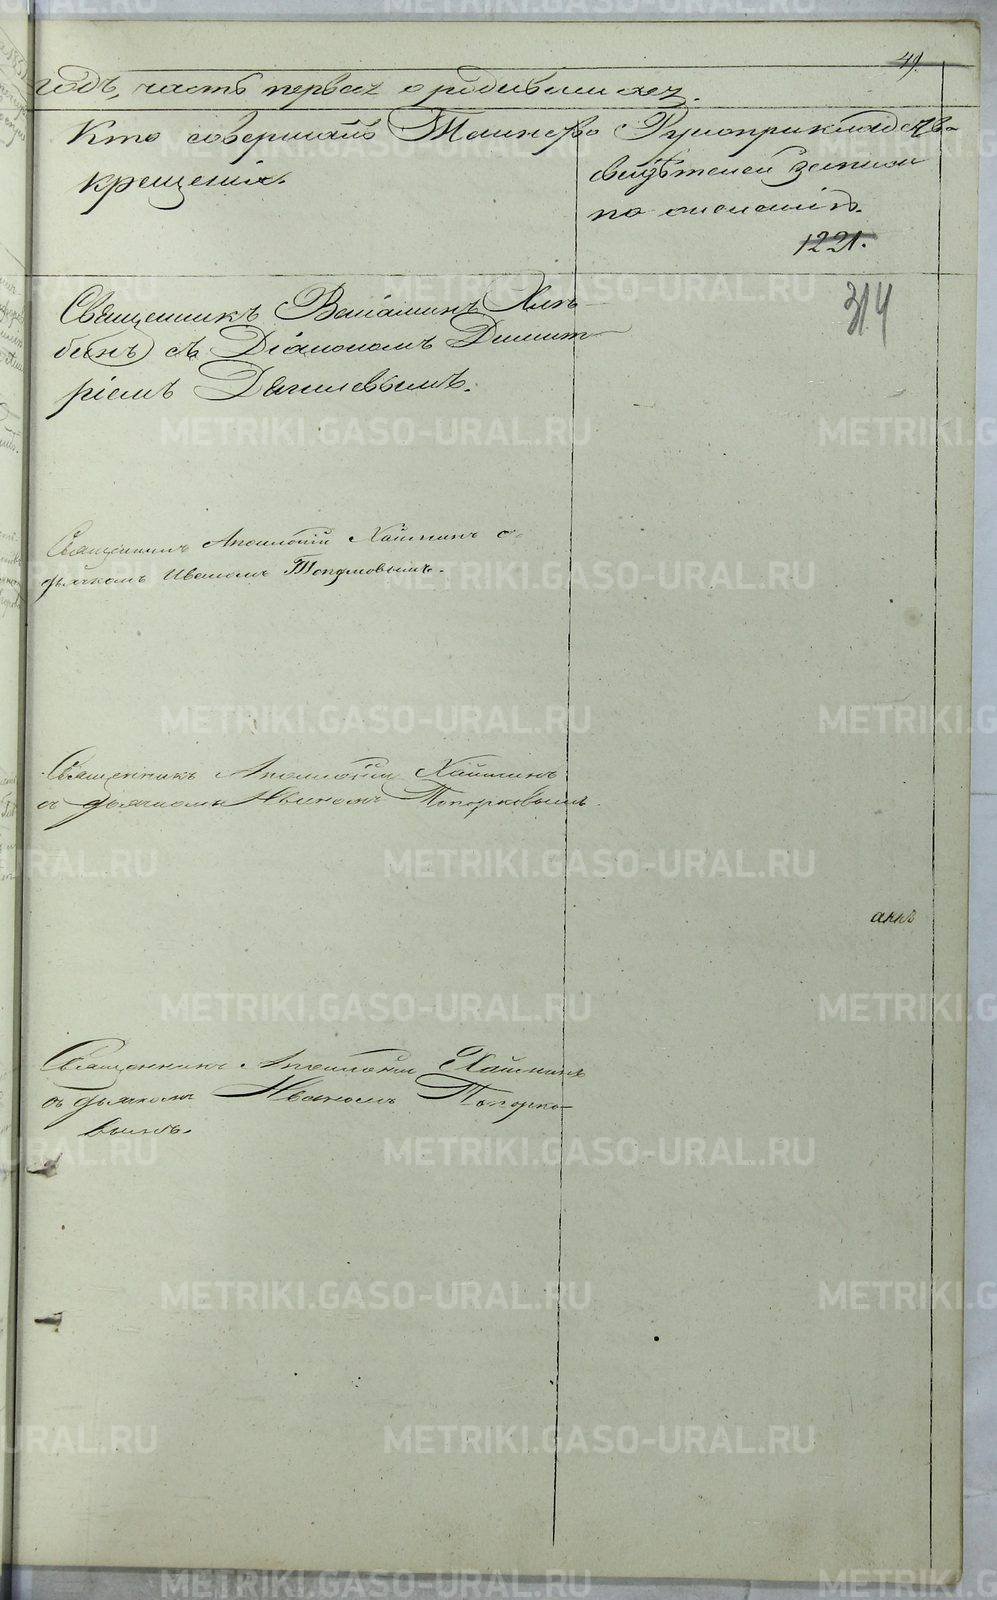 41.
годъ, часть первая о родившихся.
Кто совершалъ Таинство
крещенія.
Рукоприкладство
свидѣтелей записи
по желанію.
1221.
314
Священникъ Веніаминъ Хлѣ-
бинъ съ Діакономъ Димит-
ріемъ Дягилевымъ.
Священникъ Аполлоній Хайминъ с
дьячкомъ Иваномъ Топорковымъ.
Священникъ Аполлоній Хаймин
съ дьячкомъ Иваномъ Топорковымъ.
Священникъ Аполлоній Хайминъ
съ дьячкомъ Иваномъ Топорко-
вымъ.
METRIKI.GASO-URAL.RU